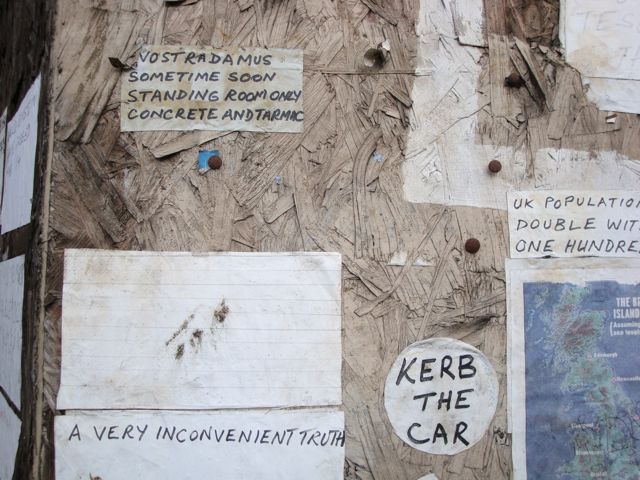 VOSTRADAMUS
SOMETIME SOON
STANDING ROOM ONLY
CONCRETE AND TARMAC
UK POPULATION
DOUBLE WIT
ONE HUNDRE
THE B
ISLAND
KERB
THE
CAR
A VERY INCONVENIENT TRUTH